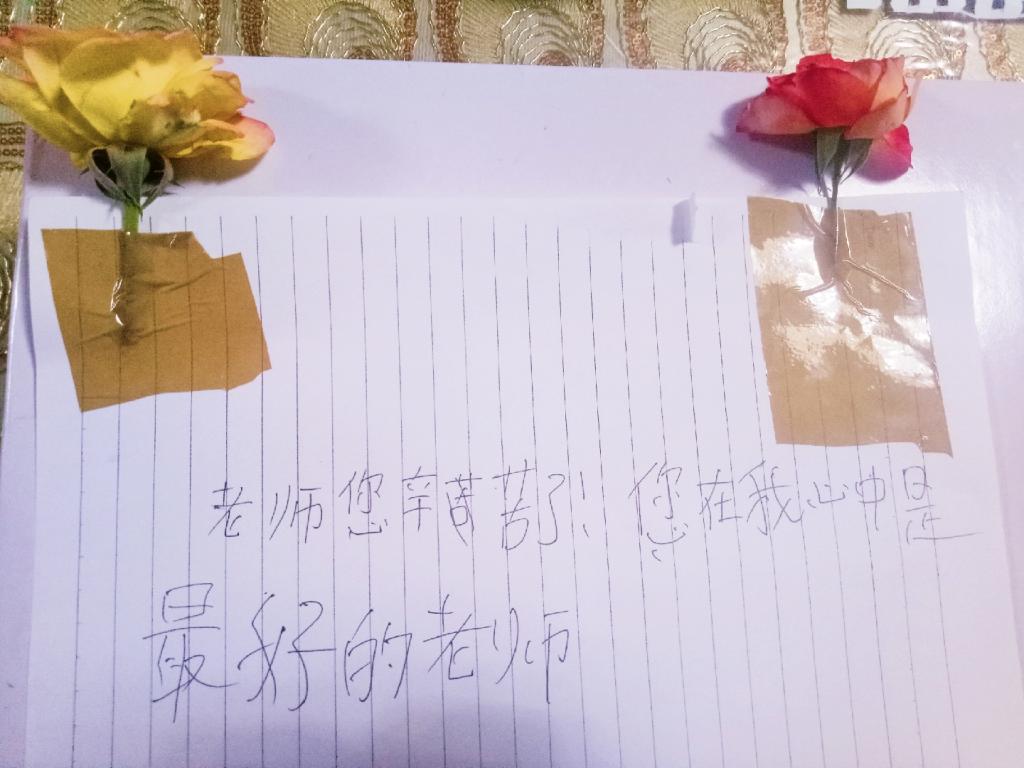 老师您辛苦苦了！您在我心中是
最好的老师